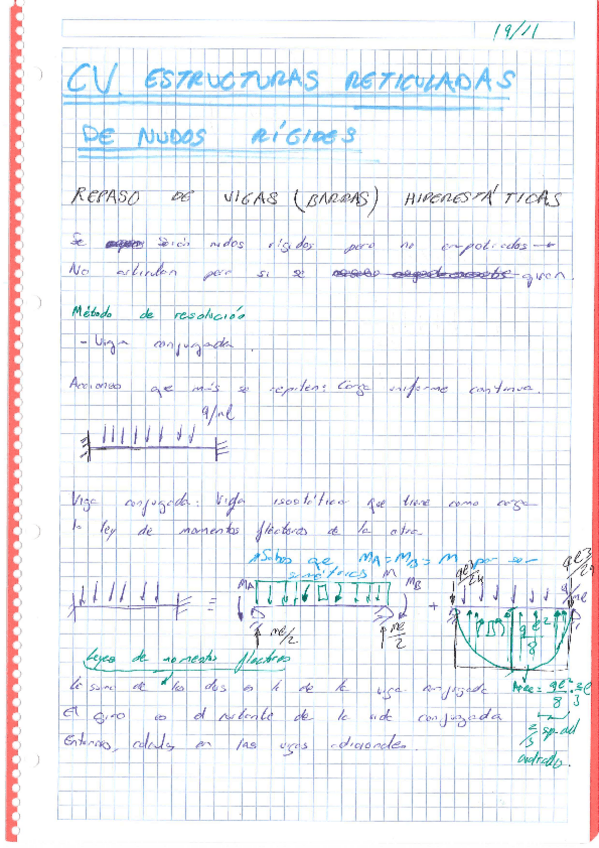 19/11
CV. ESTRUCTURAS RETICULADAS
DE NUDOS RÍGIDOS
REPASO DE VIGAS (BARRAS) HIPERESTÁTICAS
Se serán nudos rígidos pero no empotrados →
No articulan pero si se giren.
Método de resolución
- Viga conjugada.
Acciones que más se repiten: Carga uniforme continua.
q/ml
Viga conjugada: Viga isostática que tiene como carga
la ley de momentos flectores de la otra.
Sabes que MA = MB = M por ser
simétricos
M
MA
MB
≡
+
ml/2
ml/2
ql³/24
ql³/24
ql²/8
Leyes de momentos flectores
La suma de las dos es la de la viga conjugada
El giro es el cortante de la viga conjugada
Entonces, calculas en las vigas adicionales.
Área = ql²/8 · 2/3 l
2/3 sp. del
cuadrado.